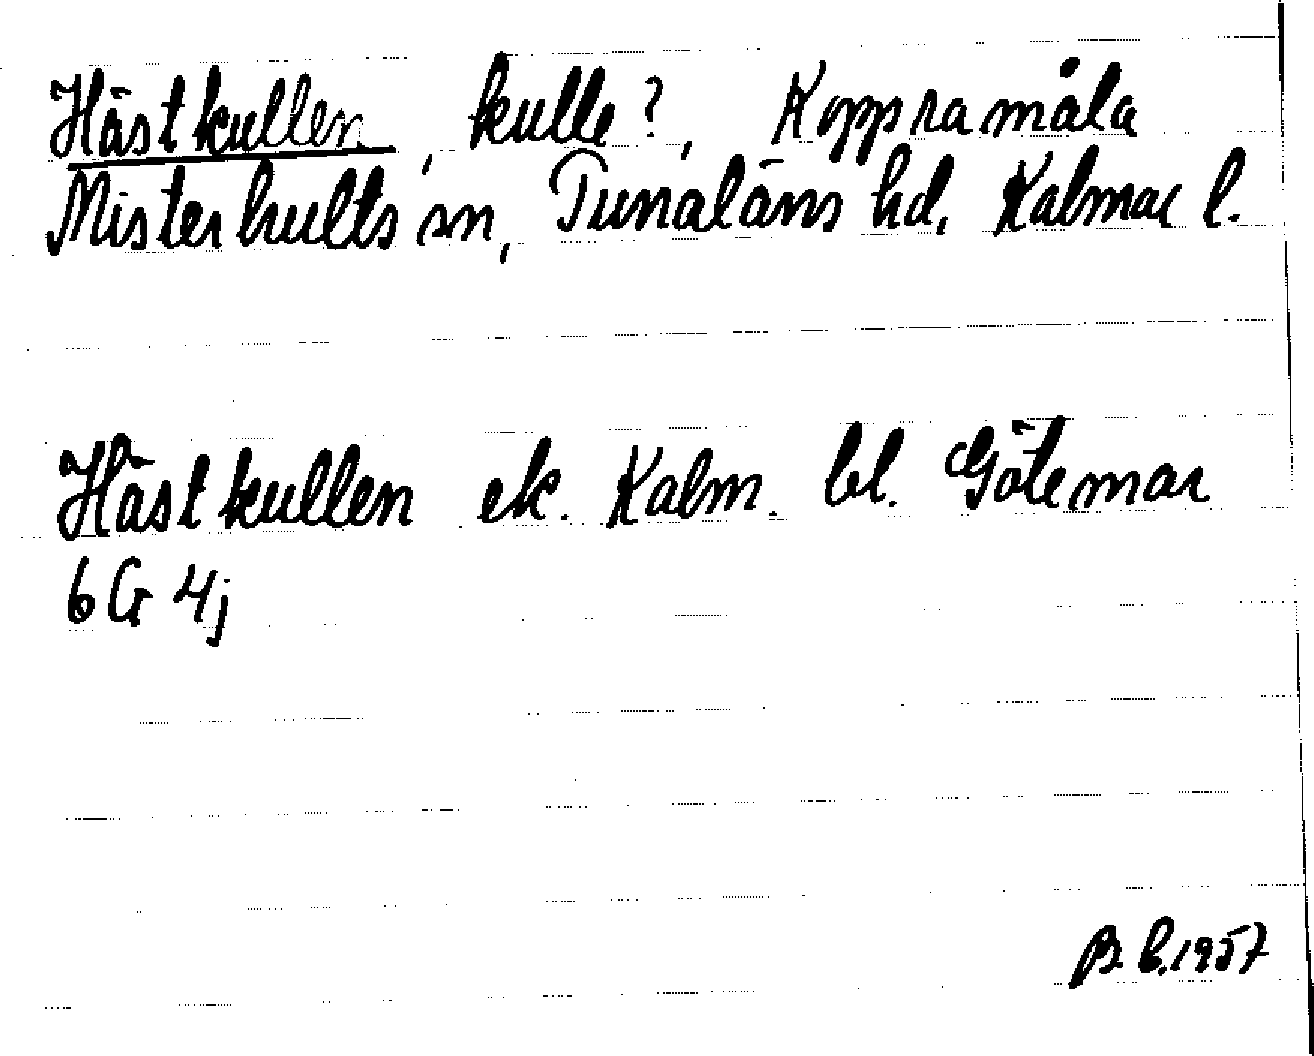 Hästkullen, kulle?, Koppramåla
Misterhults sn, Tunaläns hd, Kalmar l.
Hästkullen ek. Kalm. bl. Götemar
6G 4j
B. L. 1957